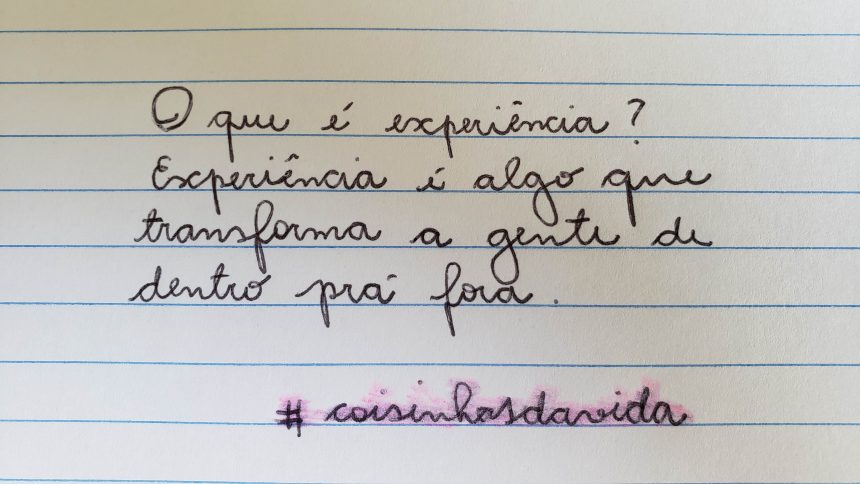 O que é experiência?
Experiência é algo que
transforma a gente de
dentro prá fora.
#coisinhasdavida